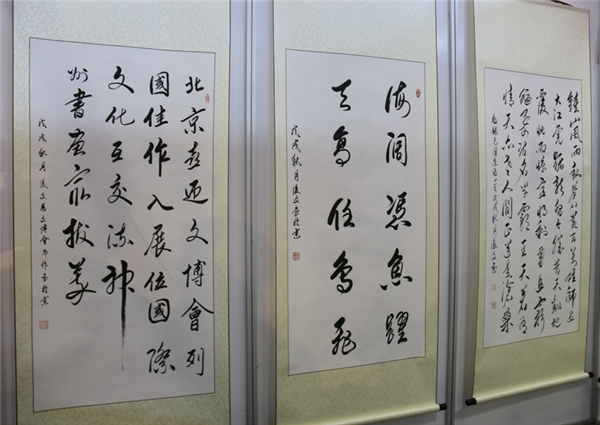 北京喜迎文博會列
國佳作入展位國際
文化互交流神
州書画拔美
戊戌秋月文博會作書於京
海闊憑魚躍
天高任鳥飛
戊戌秋月書於京
鍾山風雨起蒼黃百萬雄師過
大江虎踞龍盤今勝昔天翻地
覆慨而慷宜將剩勇追窮
寇不可沽名學霸王天若有
情天亦老人間正道是滄桑
戊戌秋月書